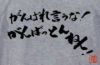 がんばれ言うな!
がんばっとんねん!